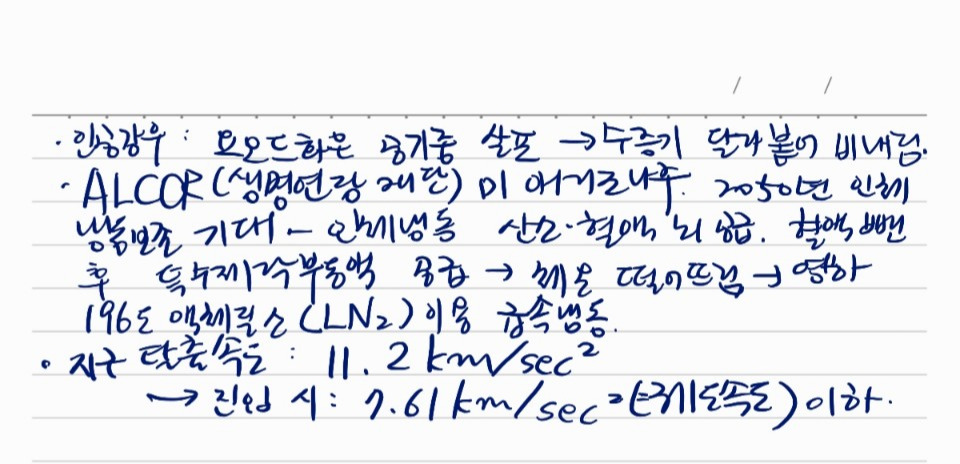 · 인공강우 : 요오드화은 공기중 살포 → 수증기 달라붙어 비내림.
· ALCOR(생명연장 재단) 미 애리조나주. 2050년 인체
냉동보존 기대 - 인체냉동 산소·혈액 뇌 공급. 혈액 뺀
후 특수제작부동액 공급 → 체온 떨어뜨림 → 영하
196도 액체질소(LN₂)이용 급속냉동.
· 지구 탈출속도 : 11.2 km/sec²
→ 진입 시 : 7.61 km/sec² (=궤도속도) 이하.